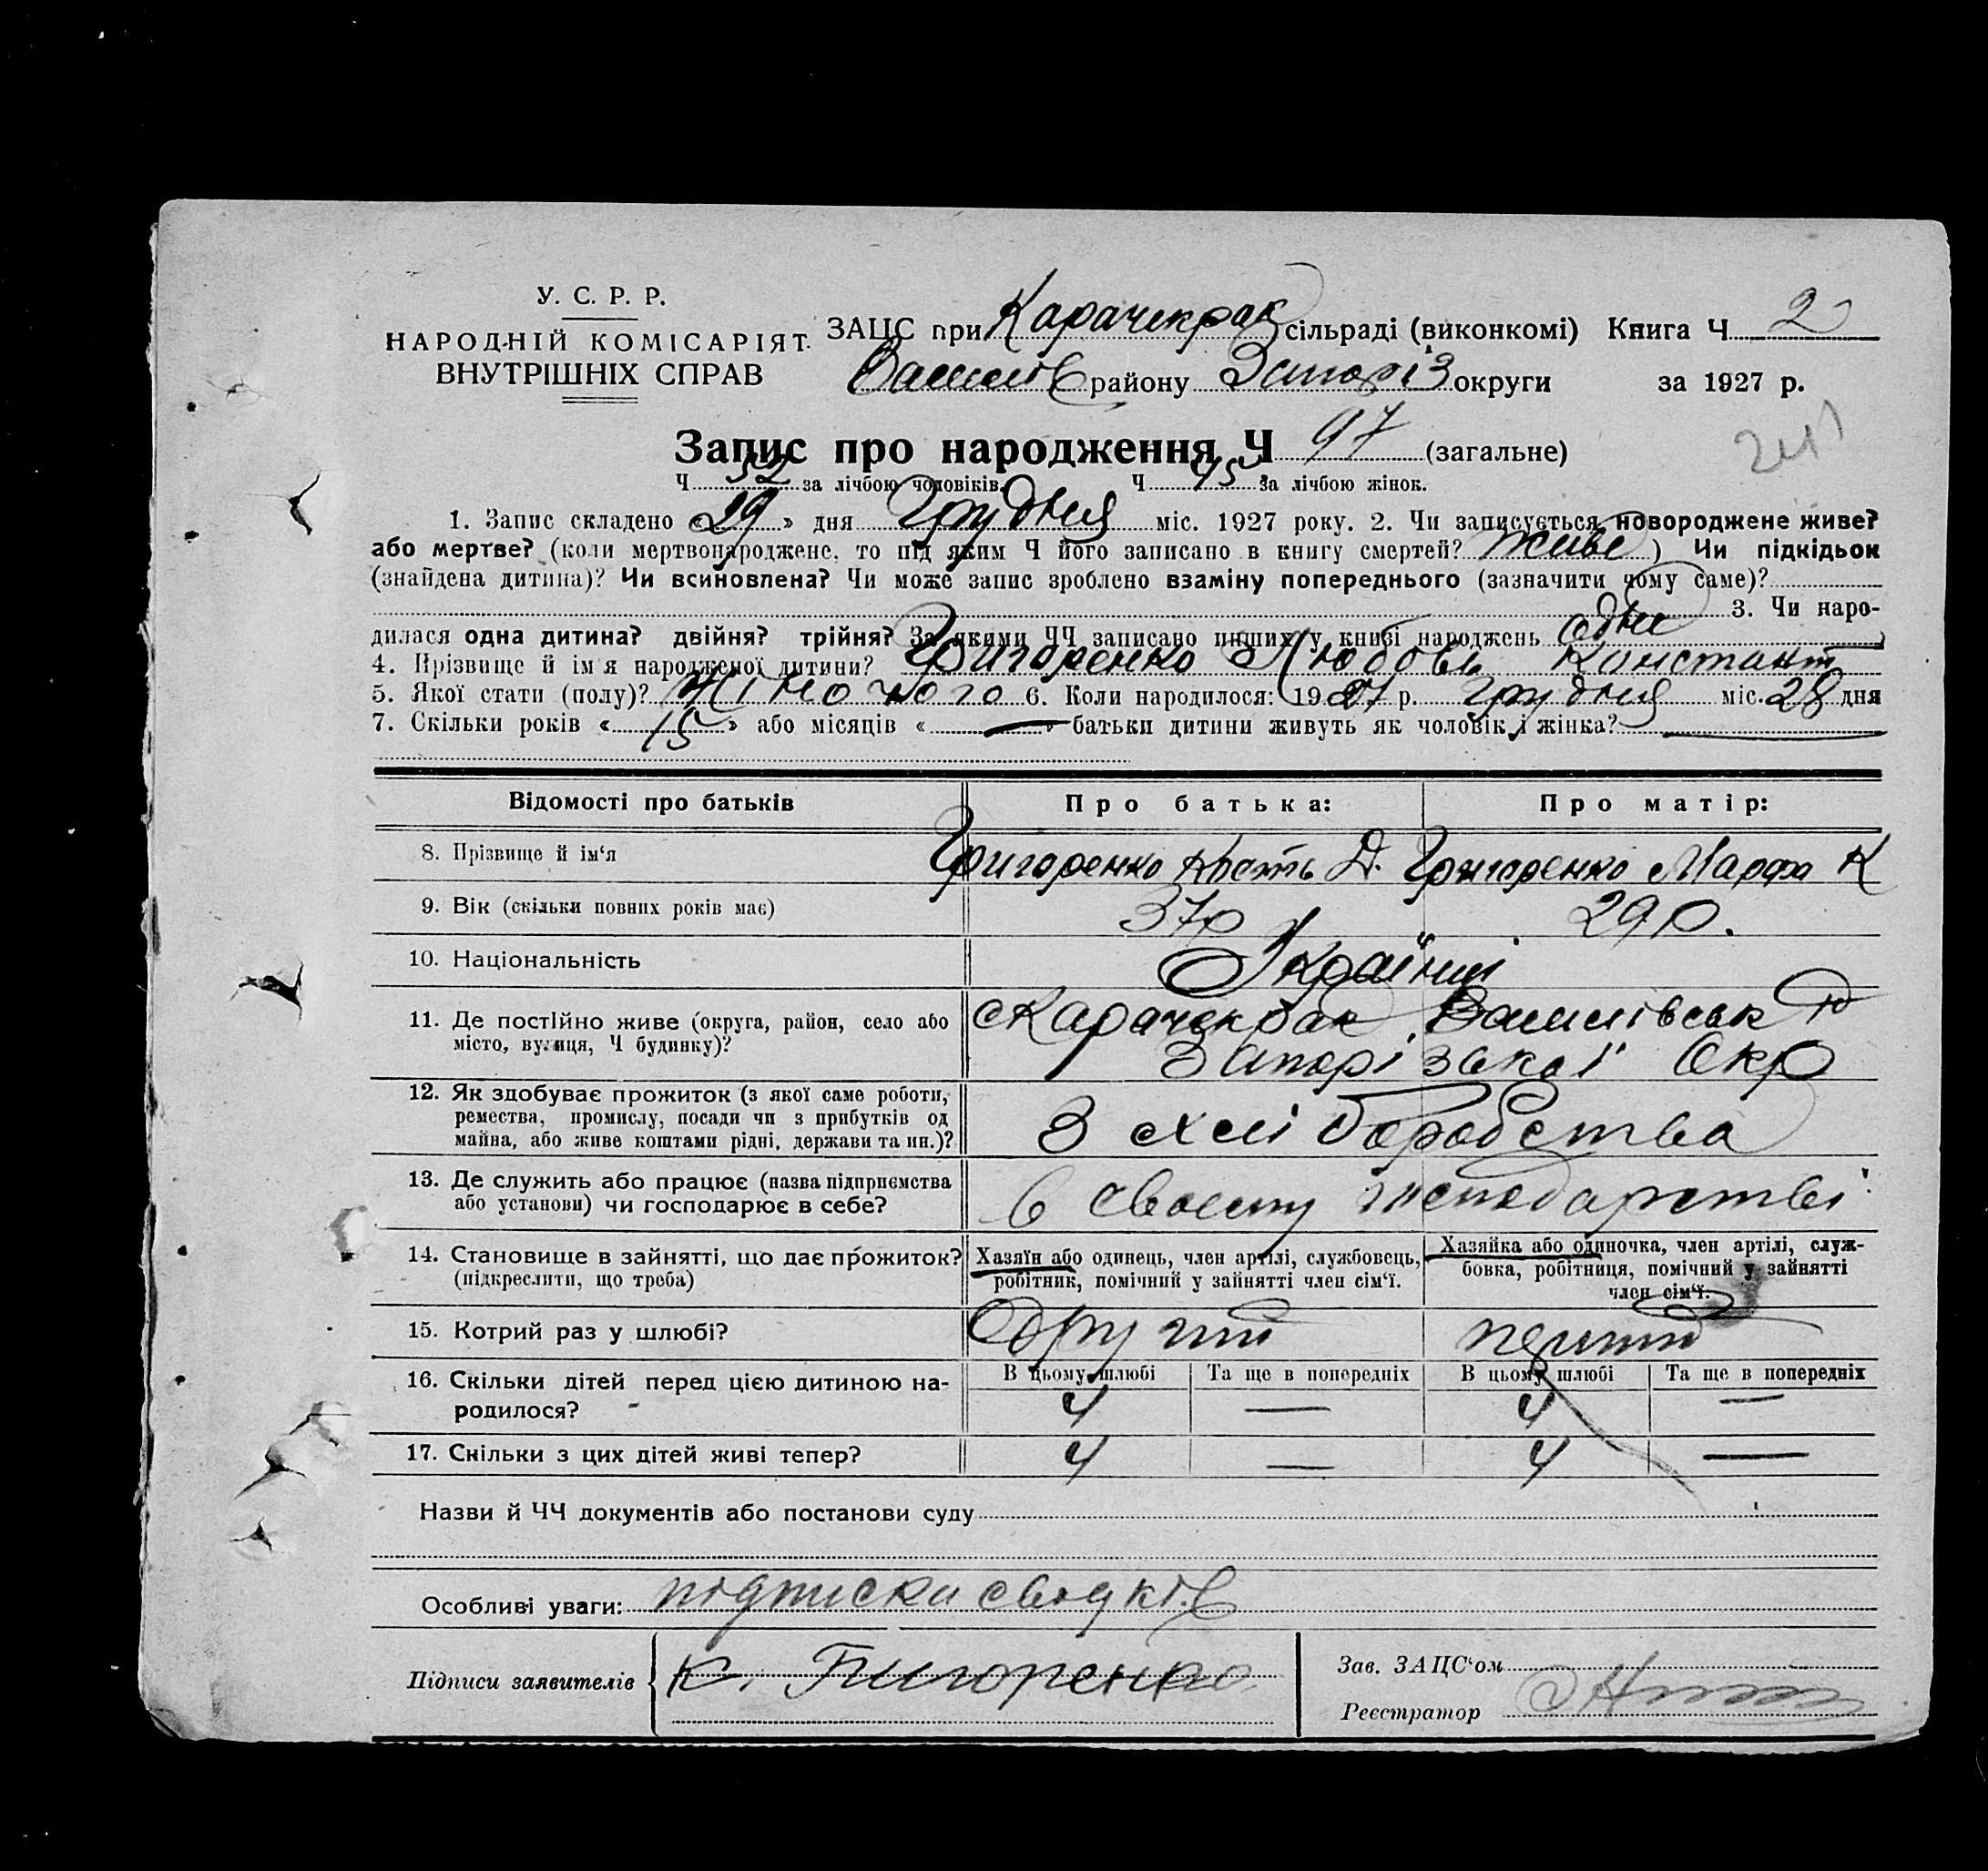 У. С. Р. Р.
НАРОДНІЙ КОМІСАРІЯТ
ВНУТРІШНІХ СПРАВ
ЗАЦС при Карачекрак сільраді (виконкомі) Книга Ч 2
Василів району Запоріз округи за 1927 р.
241
Запис про народження Ч 97 (загальне)
Ч 52 за лічбою чоловіків. Ч 45 за лічбою жінок.
1. Запис складено «29» дня Грудня міс. 1927 року. 2. Чи записується новороджене живе?
або мертве? (коли мертвонароджене, то під яким Ч його записано в книгу смертей? живе) Чи підкідьок
(знайдена дитина)? Чи всиновлена? Чи може запис зроблено взаміну попереднього (зазначити чому саме)?
3. Чи наро-
дилася одна дитина? двійня? трійня? За якими ЧЧ записано инших у книзі народжень одне
4. Прізвище й ім'я народженої дитини? Григоренко Любовь Констант
5. Якої стати (полу)? Жіночого 6. Коли народилося: 1927 р. грудня міс. 28 дня
7. Скільки років «15» або місяців «—» батьки дитини живуть як чоловік і жінка? —
Відомості про батьків Про батька: Про матір:
8. Прізвище й ім'я Григоренко Кость Д. Григоренко Марфа К
9. Вік (скільки повних років має) 37 р 29 р.
10. Національність Українці
11. Де постійно живе (округа, район, село або
місто, вулиця, Ч будинку)?
с Карачекрак Василівськ р
Запорізької Окр
12. Як здобуває прожиток (з якої саме роботи,
ремества, промислу, посади чи з прибутків од
майна, або живе коштами рідні, держави та ин.)?
З хліборобства
13. Де служить або працює (назва підприємства
або установи) чи господарює в себе?
в своему господарстві
14. Становище в зайнятті, що дає прожиток?
(підкреслити, що треба)
Хазяїн або одинець, член артілі, службовець,
робітник, помічний у зайнятті член сім'ї.
Хазяйка або одиночка, член артілі, служ-
бовка, робітниця, помічний у зайнятті
член сім'ї.
15. Котрий раз у шлюбі? Другий перший
16. Скільки дітей перед цією дитиною на-
родилося?
В цьому шлюбі Та ще в попередніх В цьому шлюбі Та ще в попередніх
4 — 4 —
17. Скільки з цих дітей живі тепер? 4 — 4 —
Назви й ЧЧ документів або постанови суду
Особливі уваги: підписки свідків
Підписи заявителів К. Григоренко
Зав. ЗАЦС'ом
Реєстратор